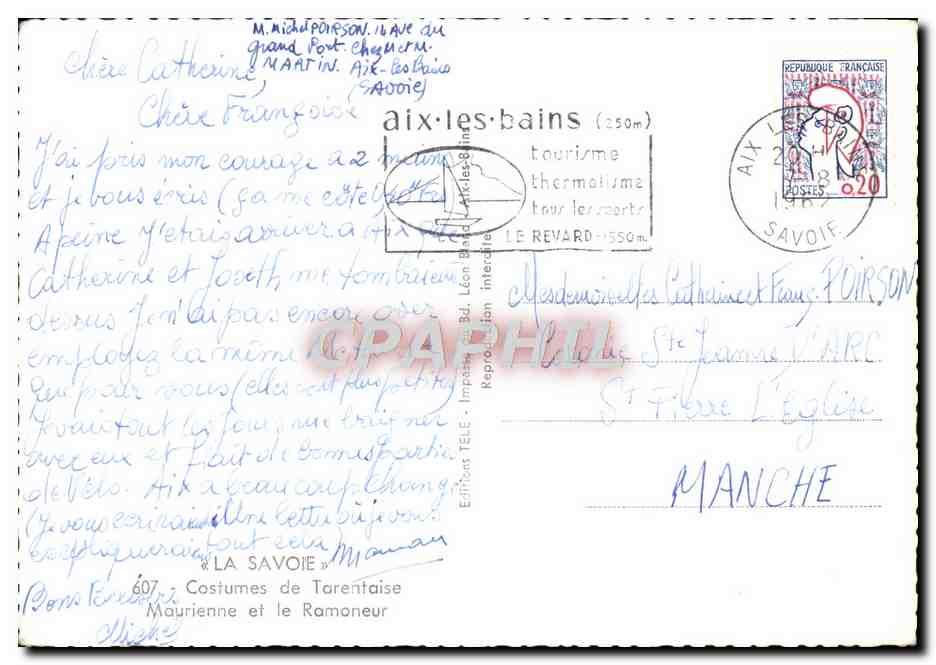 M. Michel POIRSON. 16 Ave du
grand Port. Chez M et M.
MARTIN. Aix-les-Bains
(SAVOIE)
Chère Catherine,
Chère Françoise
J'ai pris mon courage a 2 mains
et je vous écris (ça me coûte
A peine j'étais arriver a Aix que
Catherine et Joseth me tombaient
dessus. Je n'ai pas encore
employez la même
que pour vous (elles sont plus petites)
Je vais tout les jours me baigner
avec eux et fait de bonnes partie
de Vélo. Aix a beaucoup changé
(Je vous écrirais Une lettre où je vous
expliquerais tout cela)
Maman
Bons Baisers
Michel
aix·les·bains (250m)
tourisme
thermalisme
tous les sports
LE REVARD-1550m
AIX LES BAINS
20H
8
1962
SAVOIE
REPUBLIQUE FRANÇAISE
POSTES 0,20
Mesdemoiselles Catherine et Franç. POIRSON
Colonie Ste Jeanne D'ARC
St PIERRE L'Eglise
MANCHE
Editions TELE - Impasse du Bd. Léon Blanc - Aix-les-Bains
Reproduction interdite
CPAPHIL
« LA SAVOIE »
607 - Costumes de Tarentaise
Maurienne et le Ramoneur